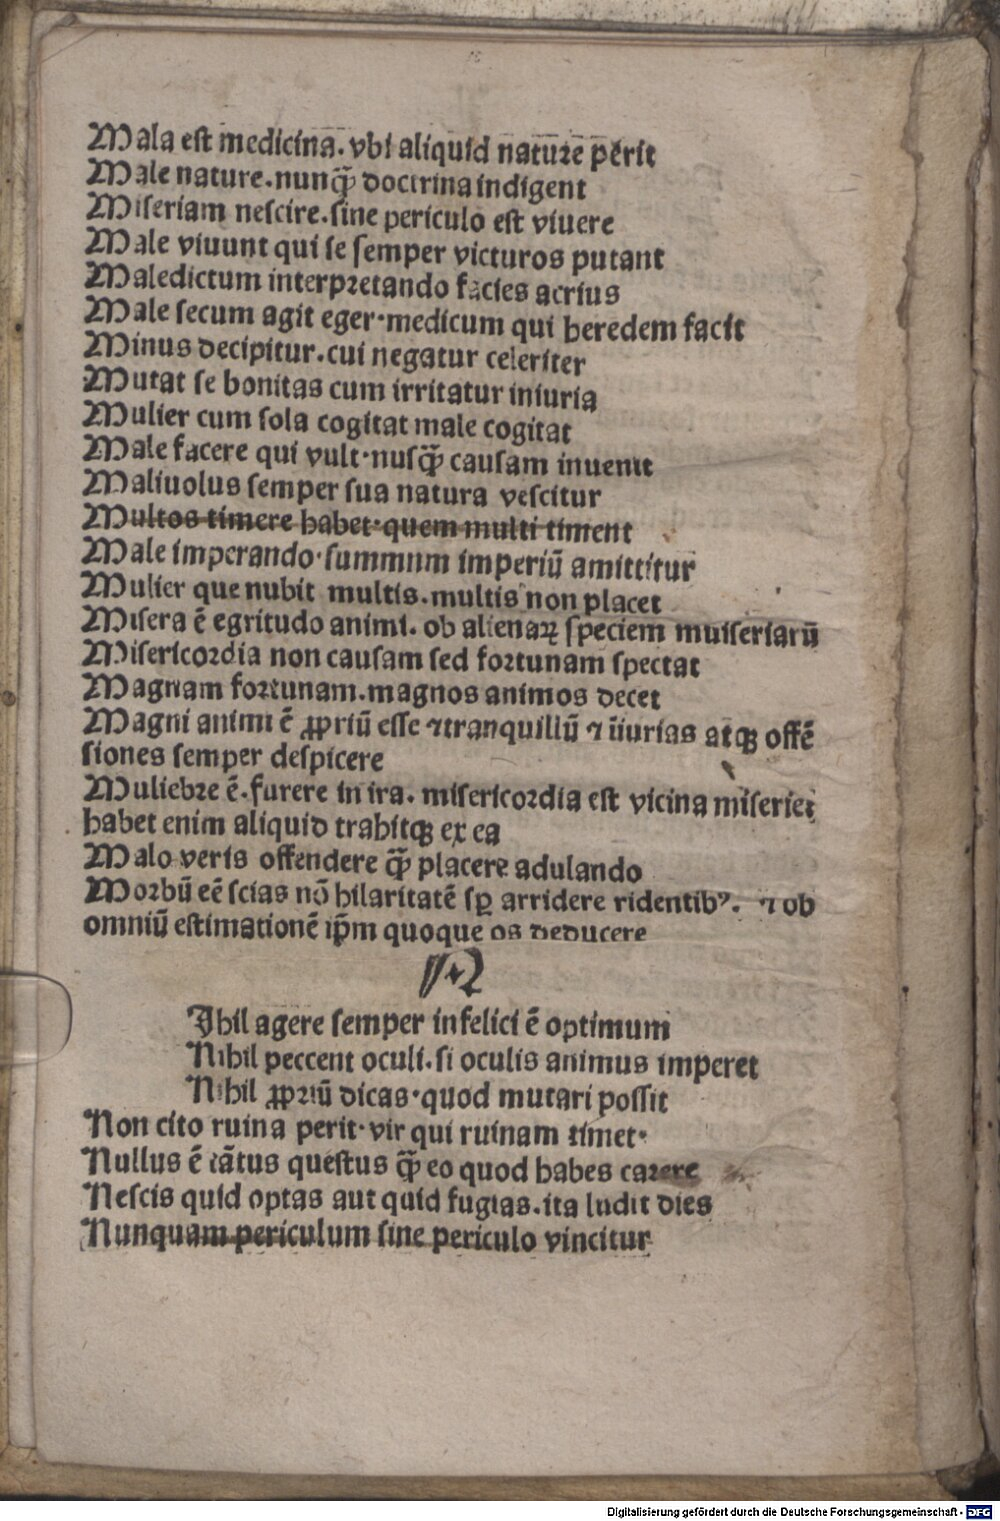 Mala est medicina. vbi aliquid nature perit
Male nature. nunqȝ̄ doctrina indigent
Miseriam nescire. sine periculo est viuere
Male viuunt qui se semper victuros putant
Maledictum interpretando facies acrius
Male secum agit eger·medicum qui heredem facit
Minus decipitur. cui negatur celeriter
Mutat se bonitas cum irritatur iniuria
Mulier cum sola cogitat male cogitat
Male facere qui vult·nusqȝ̄ causam inuenit
Maliuolus semper sua natura vescitur
Multos timere habet·quem multi timent
Male imperando·summum imperiū amittitur
Mulier que nubit multis. multis non placet
Misera ē egritudo animi. ob alienaꝝ speciem muiseriarū
Misericordia non causam sed fortunam spectat
Magnam fortunam. magnos animos decet
Magni animi ē ꝓpriū esse ⁊tranquillū ⁊ iīurias atqȝ offē
siones semper despicere
Muliebre ē. furere in ira. misericordia est vicina miseriei
habet enim aliquid trahitqȝ ex ea
Malo veris offendere qȝ̄ placere adulando
Morbū eē scias nō hilaritatē sꝑ arridere ridentibꝰ. ⁊ ob
omniū estimationē ip̄m quoque os deducere
N
Ihil agere semper infelici ē optimum
Nihil peccent oculi. si oculis animus imperet
Nihil ꝓpriū dicas·quod mutari possit
Non cito ruina perit·vir qui ruinam timet·
Nullus ē tātus questus qȝ̄ eo quod habes carere
Nescis quid optas aut quid fugias. ita ludit dies
Nunquam periculum sine periculo vincitur
Digitalisierung gefördert durch die Deutsche Forschungsgemeinschaft - DFG